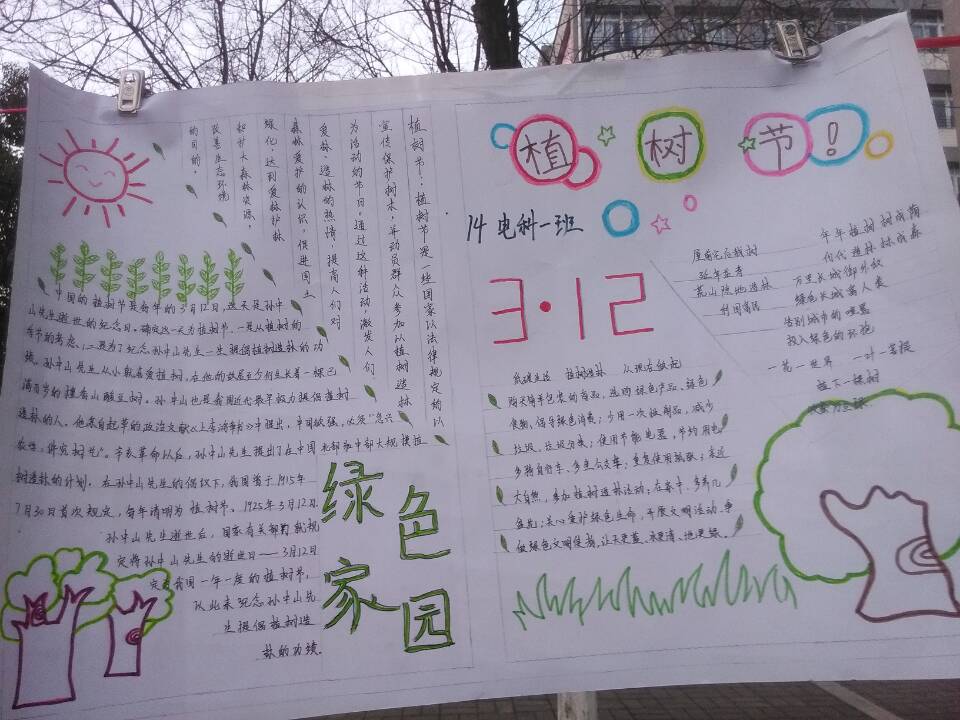 植树节!
14电科一班
3·12
植树节:植树节是一些国家以法律规定的以
宣传保护树木,并动员群众参加以植树造林
为活动的节日。通过这种活动,激发人们
爱林、造林的热情、提高人们对
森林爱护的认识,促进国土
绿化,达到爱林护林
和扩大森林资源,
改善生态环境
的目的。
中国的植树节是每年的3月12日,这天是孙中
山先生逝世的纪念日。确定这一天为植树节,一是从植树的
季节的考虑,二是为了纪念孙中山先生一生提倡植树造林的功
绩。孙中山先生从小就喜爱植树,在他的故居至今仍生长着一棵已
满百岁的檀香山酸豆树。孙中山也是我国近代最早极力提倡植树
造林的人。他亲自起草的政治文献《上李鸿章书》中提出,中国欲强,必须"急兴
农学,讲究树艺"。辛亥革命以后,孙中山先生提出了在中国北部和中部大规模植
树造林的计划。在孙中山先生的倡议下,我国曾于1915年
7月30日首次规定,每年清明为植树节。1925年3月12日
孙中山先生逝世后,国家有关部门就规
定将孙中山先生的逝世日——3月12日
定为我国一年一度的植树节,
以此来纪念孙中山先
生提倡植树造
林的功绩。
绿色
家园
屋前宅后栽树
延年益寿
荒山隙地造林
利国富民
年年植树树成荫
代代造林林成森
万里长城御外敌
绿色长城富人类
告别城市的喧嚣
投入绿色的怀抱
一花一世界 一叶一菩提
植下一棵树
低碳生活 植树造林 从现在做起
购买简单包装的商品,选购绿色产品、绿色
食物,倡导绿色消费;少用一次性制品,减少
垃圾,垃圾分类;使用节能电器,节约用电
多骑自行车、多坐公交车;重复使用纸张;亲近
大自然,参加植树造林活动;在家中,多养几
盆花;关心爱护绿色生命,开展文明活动,争
做绿色文明使者,让天更蓝、水更清、地更绿。